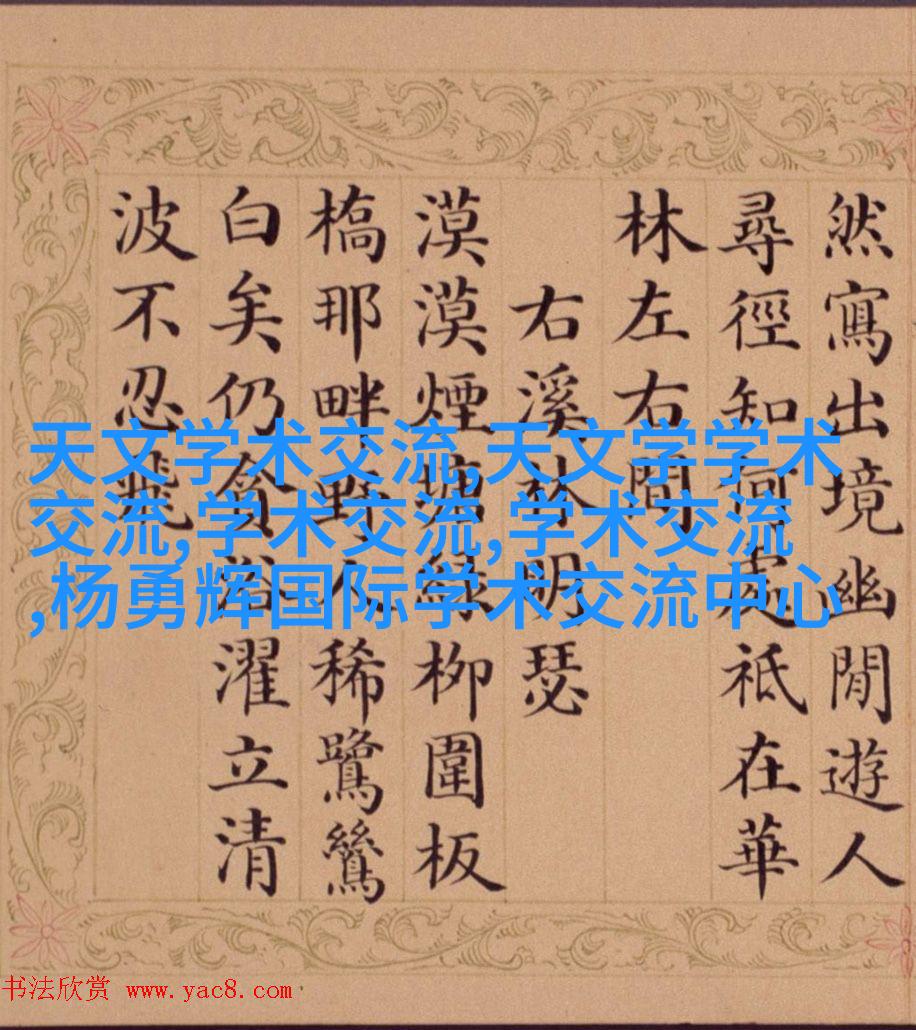 然寫出境幽閒遊人
尋徑知何處祇在華
林左右間
右溪林明瑟
漠漠煙塘綠柳圍板
橋那畔野人稀鷺鷥
白矣仍貪浴濯立清
波不忍飛
天文学术交流,天文学学术
交流,学术交流,学术交流
,杨勇辉国际学术交流中心
书法欣赏 www.yac8.com